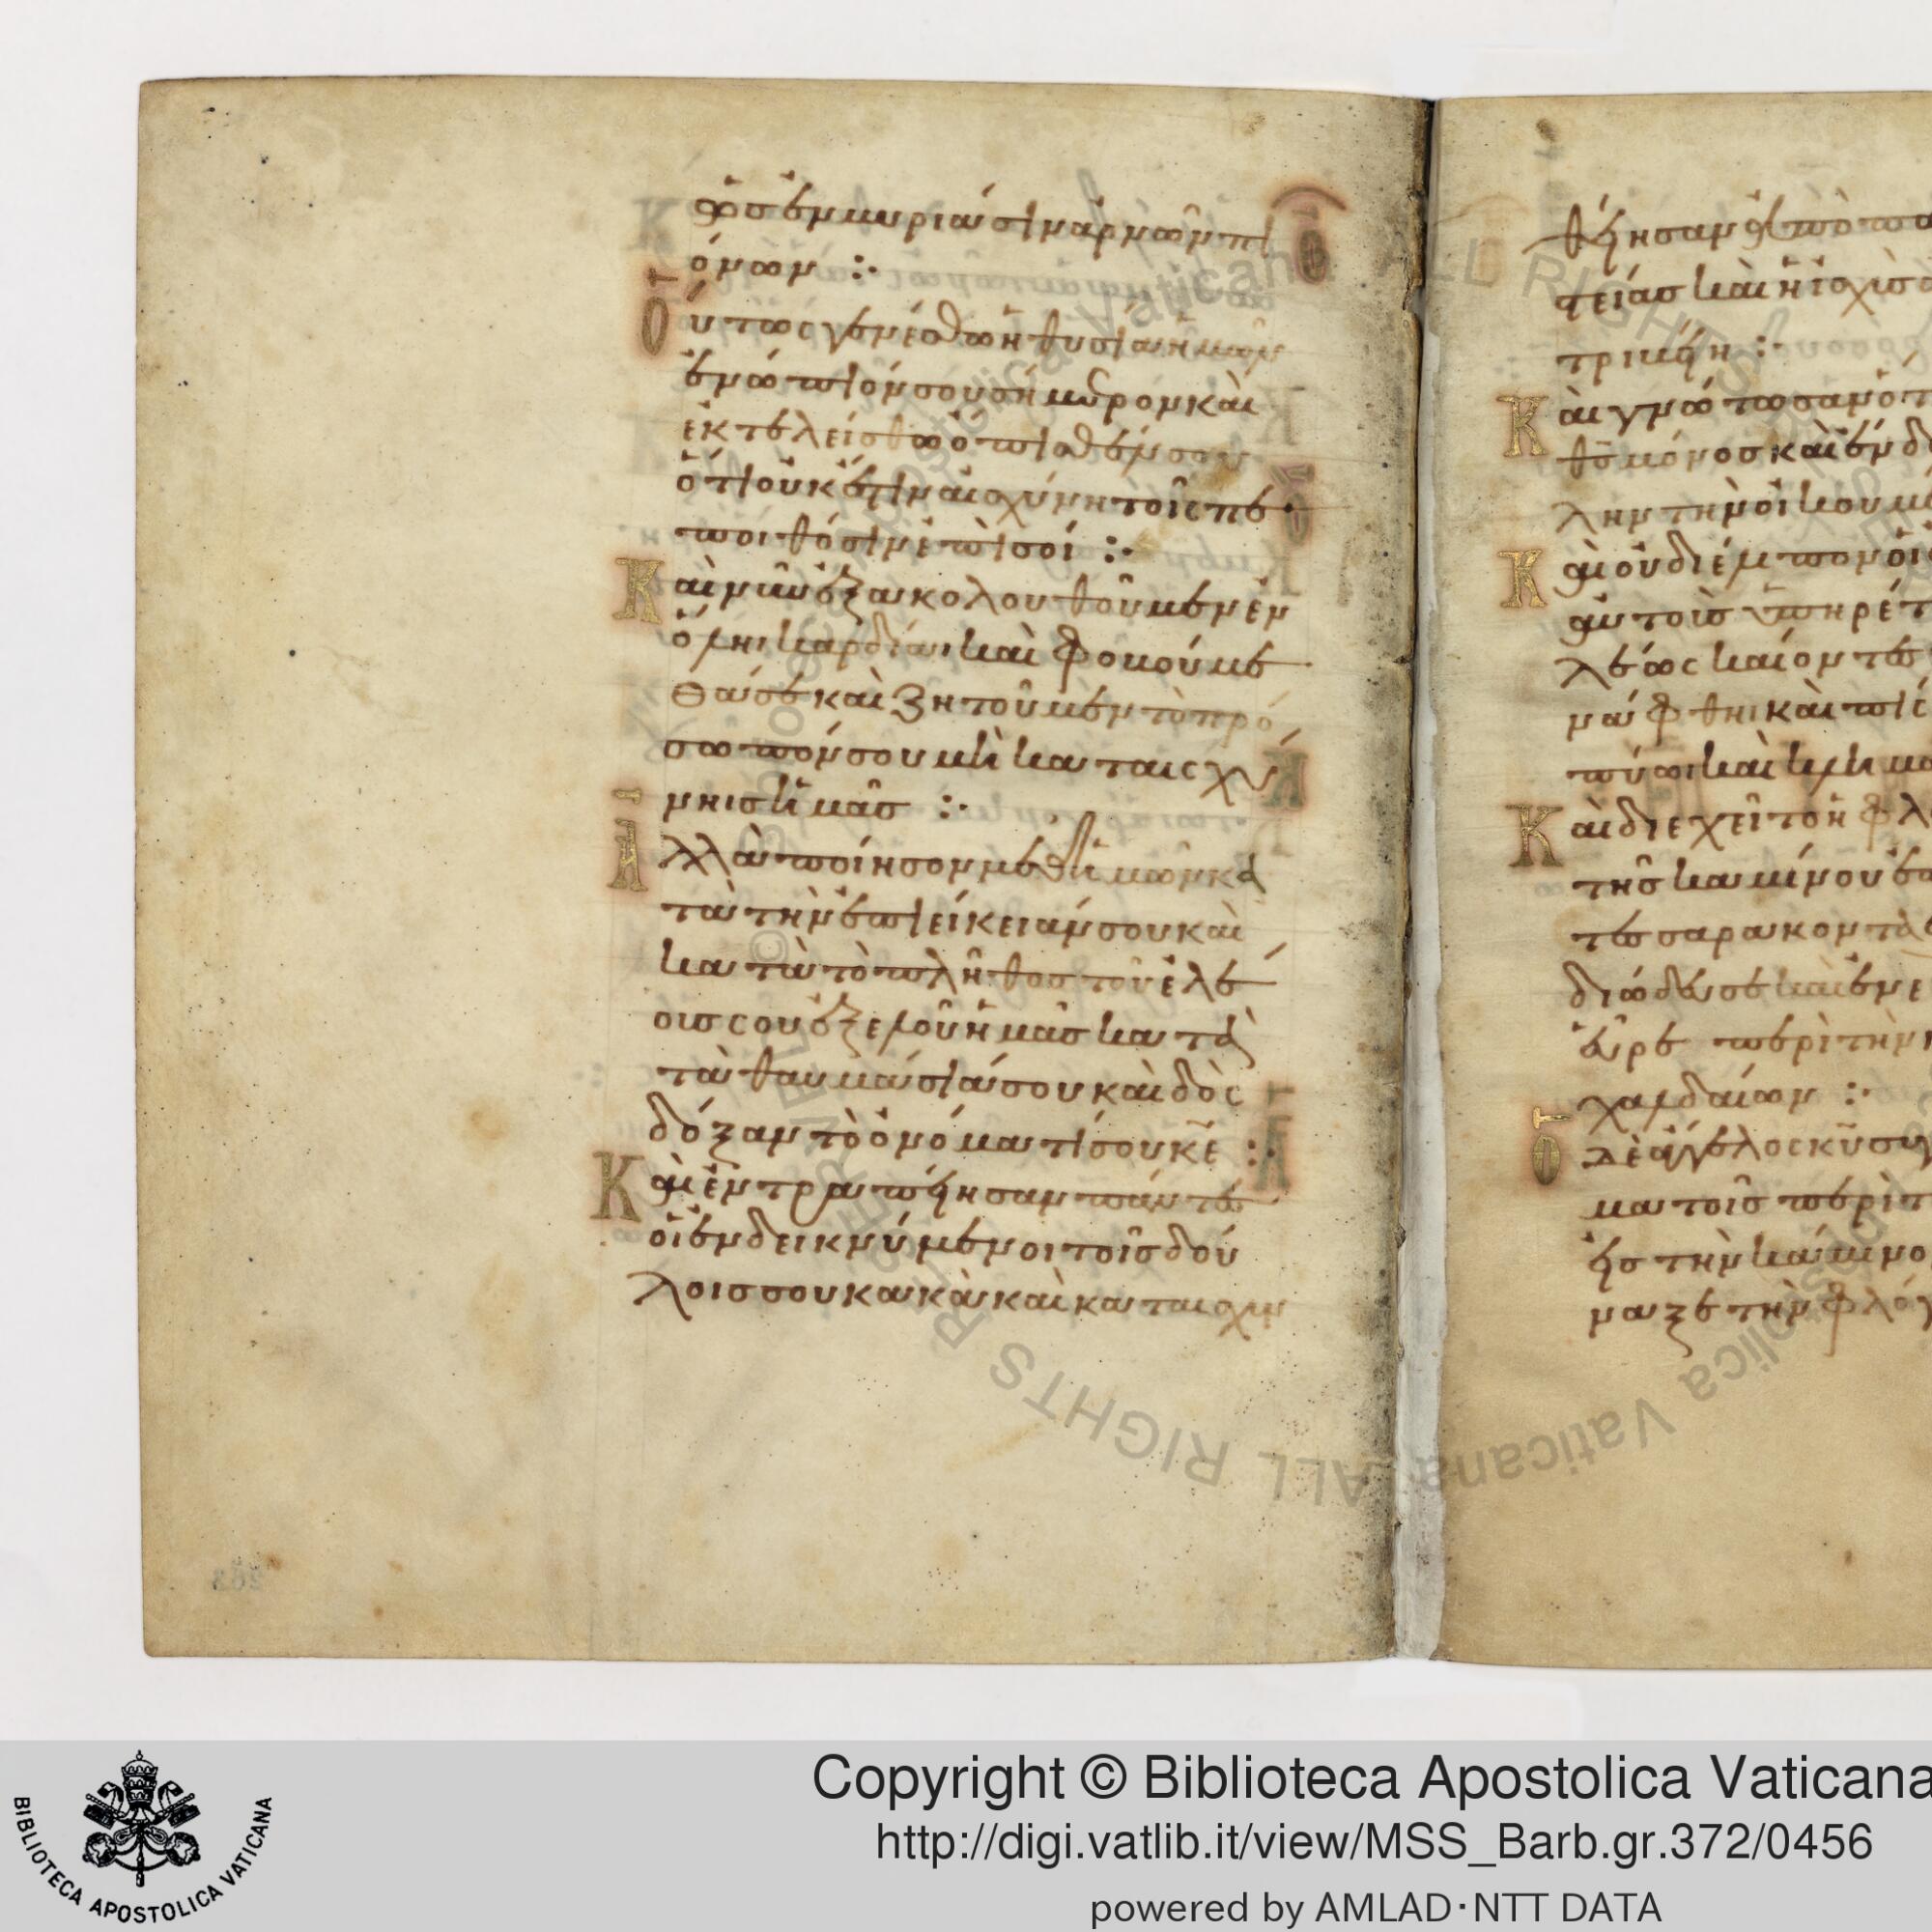 ὡσ ἐν μυριάσιν ἀρνῶν πι
όνων :·
Οὕτως γενέσθω ἡ θυσία ἡμῶν
ἐνώπιόν σου σήμερον καὶ
ἐκτελείσθω ὄπισθέν σου
ὅτι οὐκ ἔστιν αἰσχύνη τοῖς πε
ποιθόσιν ἐπὶ σοί :·
Καὶ νῦν ἐξακολουθοῦμεν ἐν
ὅλῃ καρδίᾳ καὶ φοβούμε
θά σε καὶ ζητοῦμεν τὸ πρό
σωπόν σου μὴ καταισχύ
νηισ ἡμᾶσ :·
Ἀλλὰ ποίησον μεθ ἡμῶν κα
τὰ τὴν ἐπιείκειάν σου καὶ
κατὰ τὸ πλῆθοσ τοῦ ἐλέ
ουσ σου ἐξελοῦ ἡμᾶσ κατὰ
τὰ θαυμάσιά σου καὶ δὸς
δόξαν τὸ ὀνόματί σου κε :·
Καὶ ἐντραπείησαν πάντεσ
οἱ ἐνδεικνύμενοι τοῖσ δού
λοισ σου κακὰ καὶ καταισχυν
θείησαν ἀπὸ
τείασ καὶ ἡ ἰσχὺσ
τριβείη :·
Καὶ γνώτωσαν ὅτι
θσ μόνοσ καὶ ἔνδο
λην τὴν οἰκουμέ
Καὶ οὐ διέλιπον οἱ
αὐτοὺσ ὑπηρέτ
λέως καίοντεσ
νάφθηι καὶ πίσ
πύωι καὶ κλημα
Καὶ διεχεῖτο ἡ φλ
τῆσ καμίνου ἐπ
τεσσαρακοντα
διώδευσε καὶ ἐνε
εὗρε περὶ τὴν κ
χαλδαίων :·
Ὁ δὲ ἄγγελος κυ συγ
μα τοῖσ περὶ τ
εἰσ τὴν κάμινο
ναξε τὴν φλόγ
263
BIBLIOTECA APOSTOLICA VATICANA
Copyright © Biblioteca Apostolica Vaticana
http://digi.vatlib.it/view/MSS_Barb.gr.372/0456
powered by AMLAD·NTT DATA